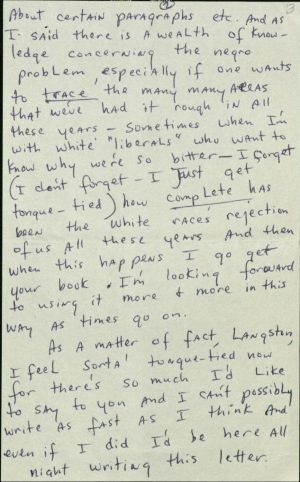 2
3
About certain paragraphs etc. And as
I said there is a wealth of know-
ledge concerning the negro
problem, especially if one wants
to trace the many many areas
that we've had it rough in all
these years – sometimes when I'm
with white "liberals" who want to
know why we're so bitter – I forget
(I don't forget – I just get
tongue-tied) how complete has
been the white races' rejection
of us all these years And then
when this happens I go get
your book. I'm looking forward
to using it more & more in this
way as times go on.
As a matter of fact, Langston,
I feel sorta' tongue-tied now
for there's so much I'd like
to say to you and I can't possibly
write as fast as I think And
even if I did I'd be here all
night writing this letter.